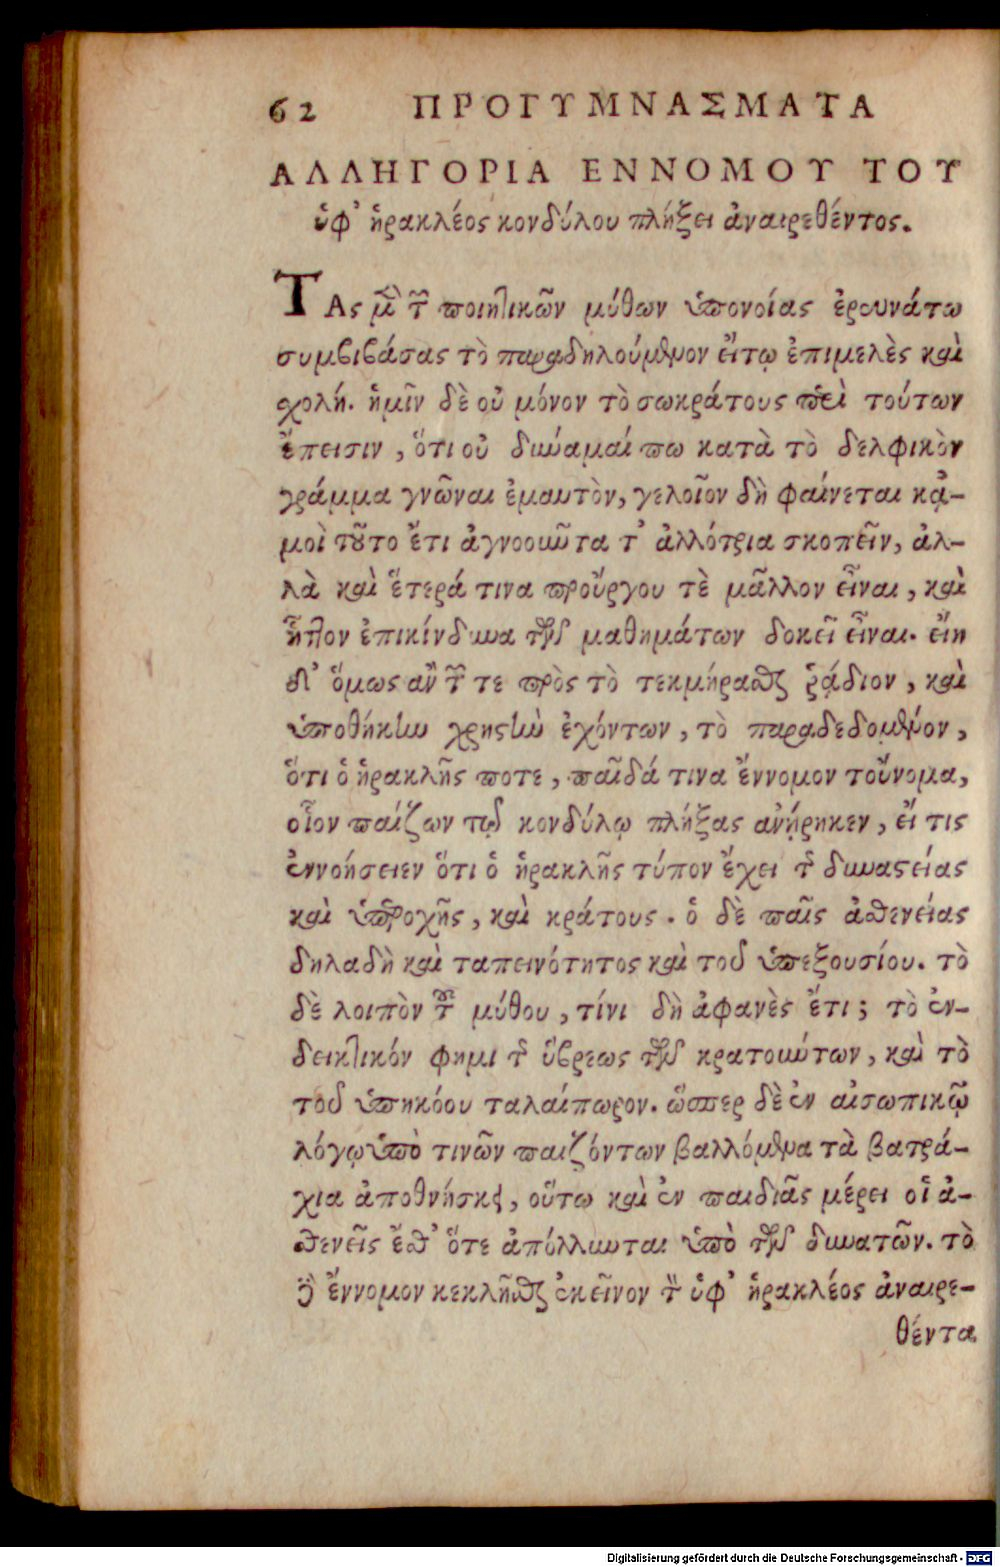 62 ΠΡΟΓΥΜΝΑΣΜΑΤΑ
ΑΛΛΗΓΟΡΙΑ ΕΝΝΟΜΟΥ ΤΟΥ
ὑφ' ἡρακλέος κονδύλου πλήξει ἀναιρεθέντος.
ΤΑς μὲν τῶν ποιητικῶν μύθων ὑπονοίας ἐρευνάτω
συμβιβάσας τὸ παραδηλούμενον εἴτῳ ἐπιμελὲς καὶ
σχολή. ἡμῖν δὲ οὐ μόνον τὸ σωκράτους περὶ τούτων
ἔπεισιν, ὅτι οὐ δύναμαί πω κατὰ τὸ δελφικὸν
γράμμα γνῶναι ἐμαυτὸν, γελοῖον δὴ φαίνεται κᾀ-
μοὶ τοῦτο ἔτι ἀγνοοῦντα τ' ἀλλότρια σκοπεῖν, ἀλ-
λὰ καὶ ἕτερά τινα προὔργου τὲ μᾶλλον εἶναι, καὶ
ἧττον ἐπικίνδυνα τῶν μαθημάτων δοκεῖ εἶναι. εἴη
δ' ὅμως ἂν τῶν τε πρὸς τὸ τεκμήρασθαι ῥᾴδιον, καὶ
ὑποθήκην χρηστὴν ἐχόντων, τὸ παραδεδομένον,
ὅτι ὁ ἡρακλῆς ποτε, παῖδά τινα ἔννομον τοὔνομα,
οἷον παίζων τῷ κονδύλῳ πλήξας ἀνῄρηκεν, εἴ τις
ἐννοήσειεν ὅτι ὁ ἡρακλῆς τύπον ἔχει τῆς δυναστείας
καὶ ὑπεροχῆς, καὶ κράτους. ὁ δὲ παῖς ἀσθενείας
δηλαδὴ καὶ ταπεινότητος καὶ τοῦ ὑπεξουσίου. τὸ
δὲ λοιπὸν τοῦ μύθου, τίνι δὴ ἀφανὲς ἔτι; τὸ ἐν-
δεικτικόν φημι τῆς ὕβρεως τῶν κρατούντων, καὶ τὸ
τοῦ ὑπηκόου ταλαίπωρον. ὥσπερ δὲ ἐν αἰσωπικῷ
λόγῳ ὑπὸ τινῶν παιζόντων βαλλόμενα τὰ βατρά-
χια ἀποθνήσκει, οὕτω καὶ ἐν παιδιᾶς μέρει οἱ ἀ-
σθενεῖς ἔσθ' ὅτε ἀπόλλυνται ὑπὸ τῶν δυνατῶν. τὸ
δὲ ἔννομον κεκλῆσθαι ἐκεῖνον τὸν ὑφ' ἡρακλέος ἀναιρε-
θέντα
Digitalisierung gefördert durch die Deutsche Forschungsgemeinschaft - DFG